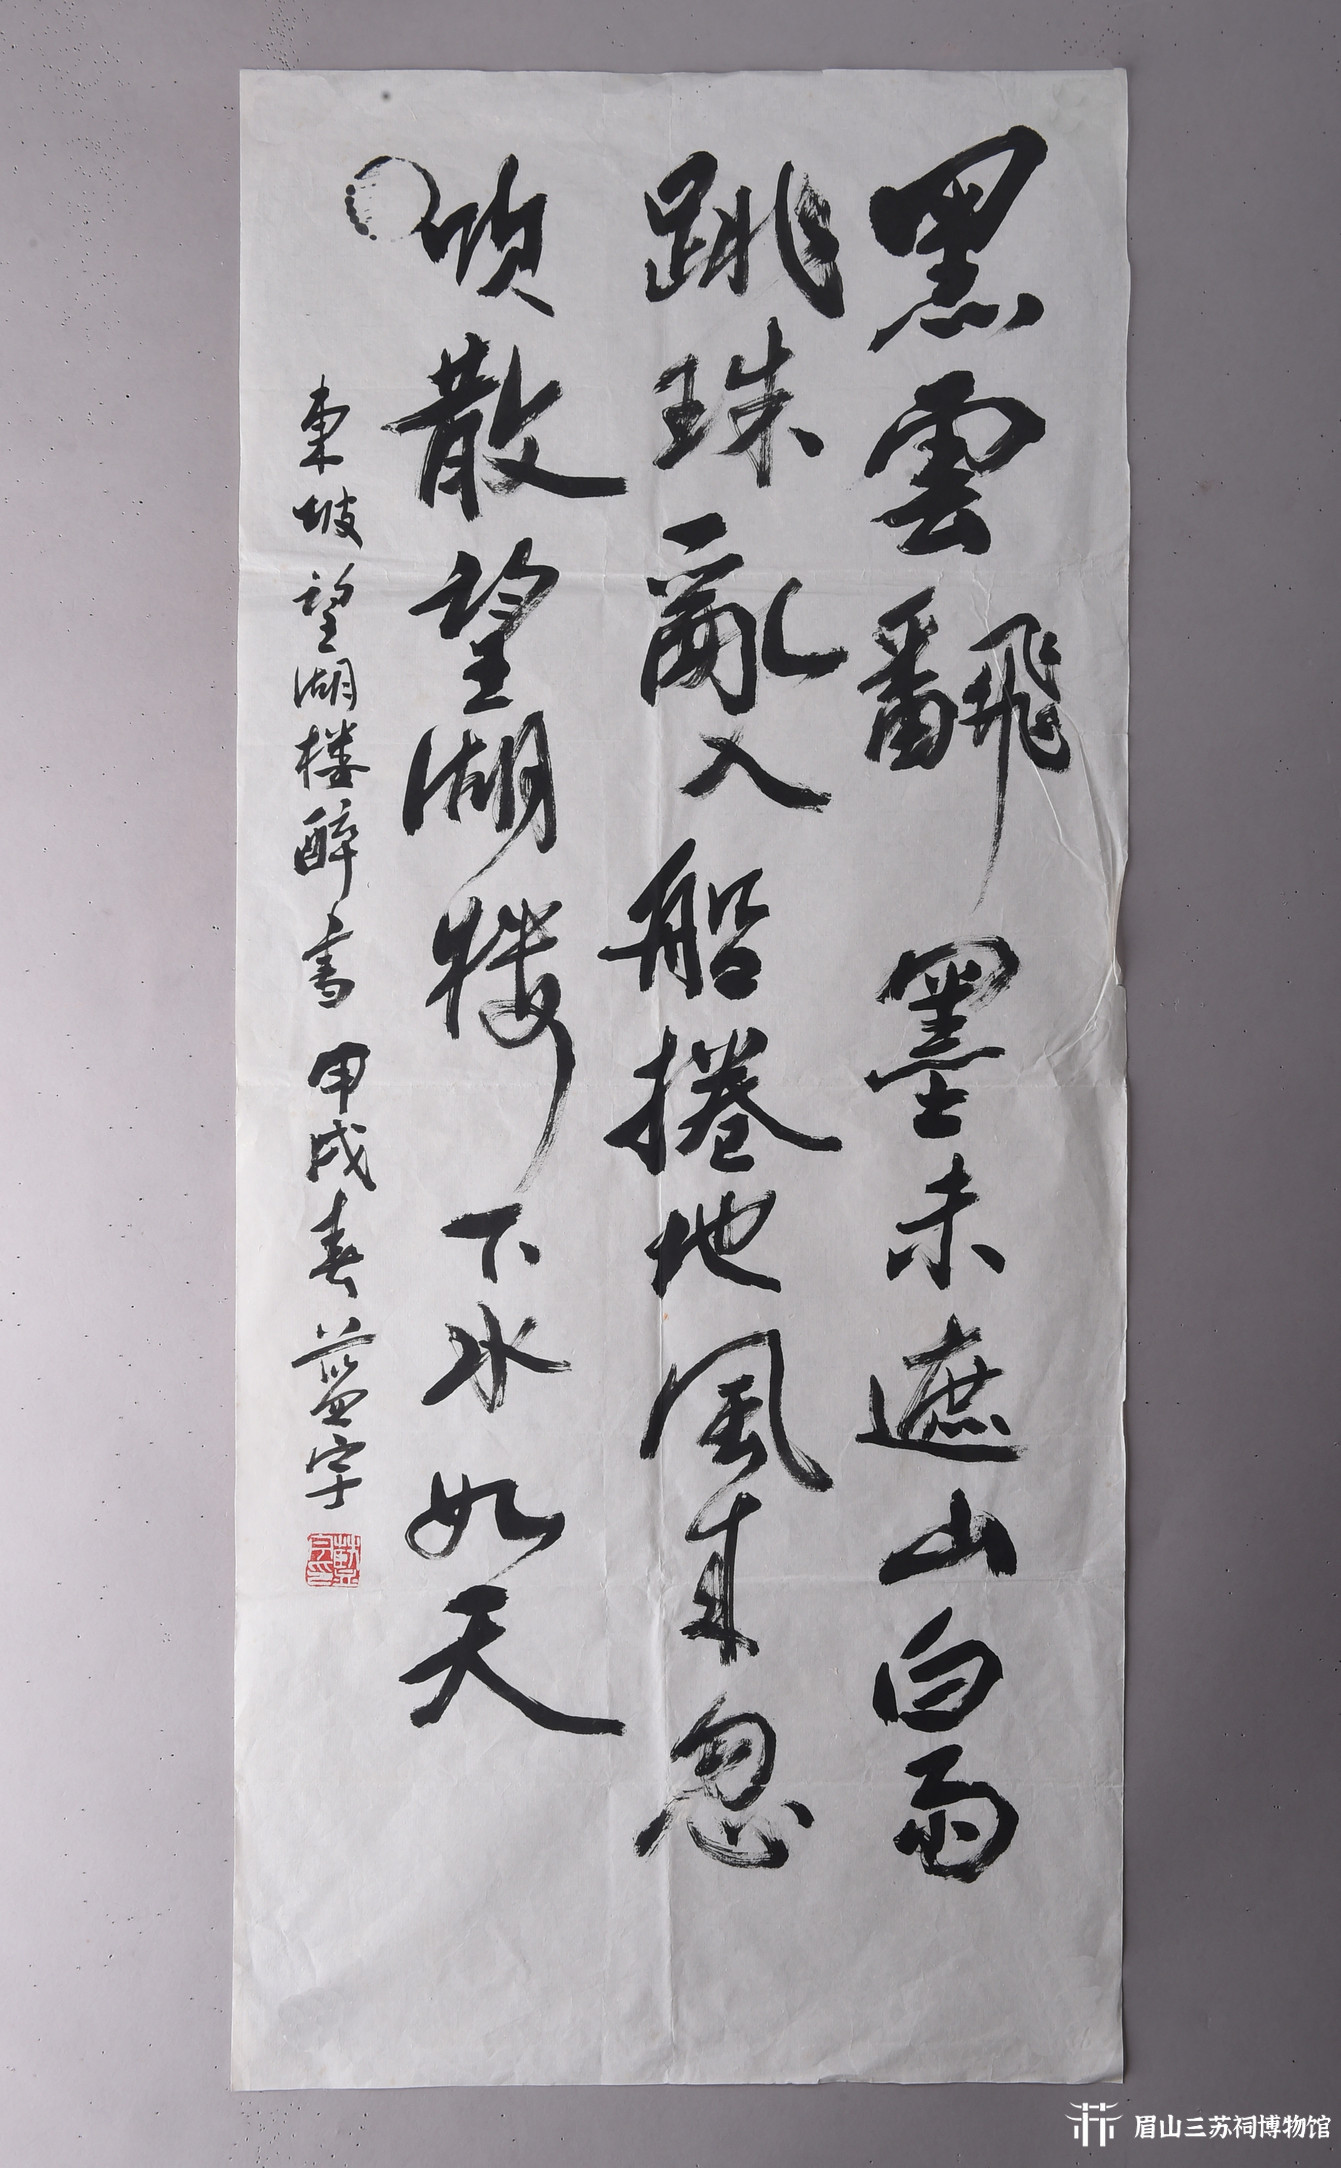 黑雲翻墨未遮山白雨
跳珠亂入船捲地風来忽
吹散望湖楼下水如天
東坡望湖楼醉書 甲戌春 蓝宇
眉山三苏祠博物馆